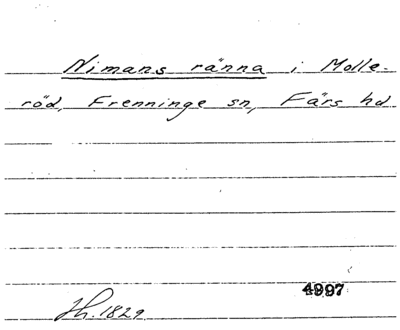 Nimans ränna i Molle-
röd, Frenninge sn, Färs hd
4997
Jh. 1829